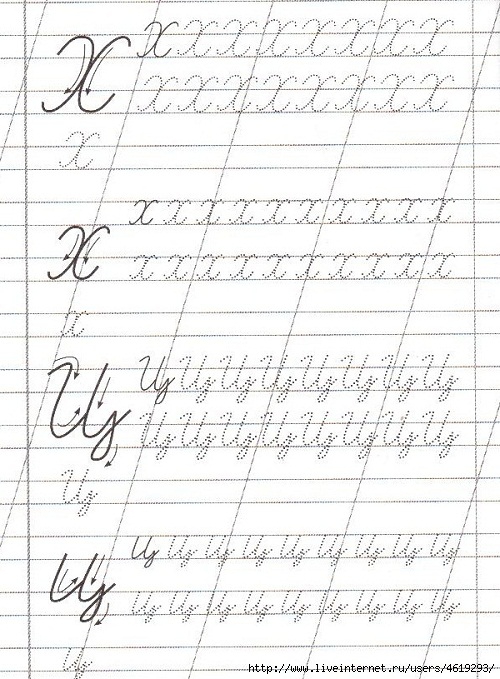 Х Х Х Х Х Х Х Х Х
Х Х Х Х Х Х Х Х
Х
х х х х х х х х х х х
х х х х х х х х х х
х
Ц Ц Ц Ц Ц Ц Ц Ц Ц
Ц Ц Ц Ц Ц Ц Ц Ц
Ц
ц ц ц ц ц ц ц ц ц ц
ц ц ц ц ц ц ц ц ц
ц
http://www.liveinternet.ru/users/4619293/